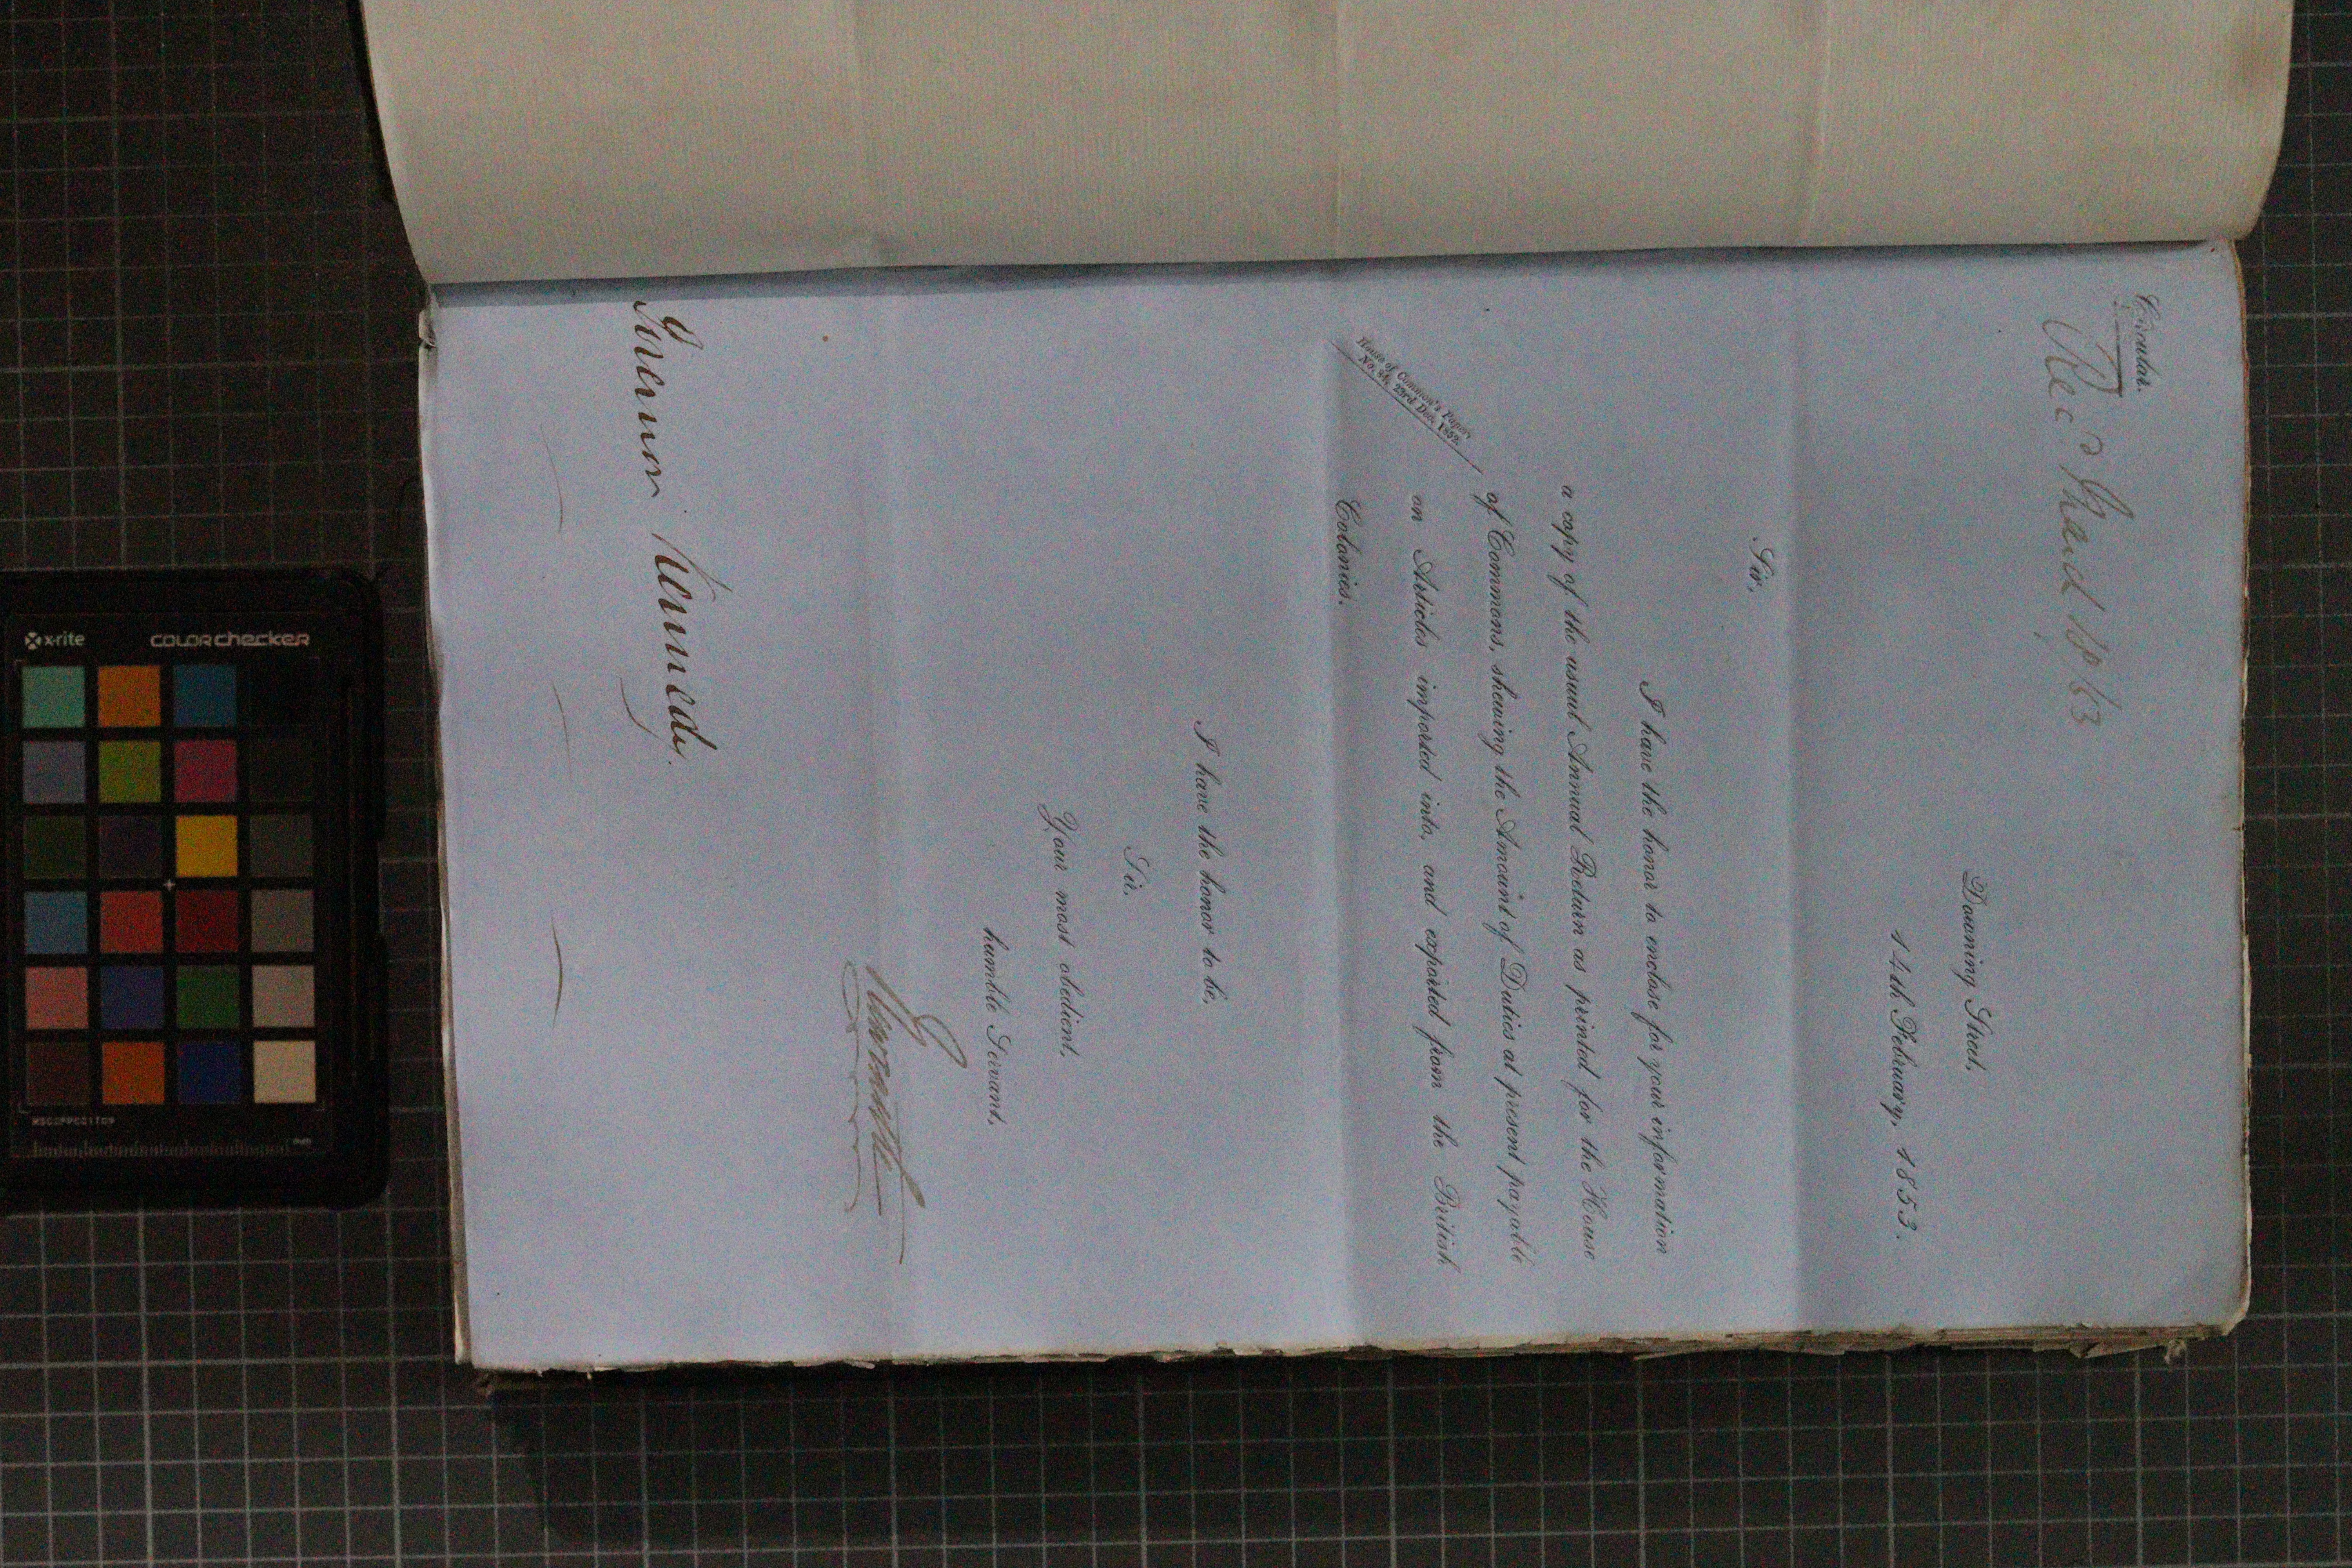 Circular.
Rec.d 18/53
Downing Street,
14th February, 1853.
Sir,
I have the honor to enclose for your information
a copy of the usual Annual Return as printed for the House
House of Common's Paper
No. 84, 23rd Dec. 1852.
of Commons, shewing the Amount of Duties at present payable
on Articles imported into, and exported from the British
Colonies.
I have the honor to be,
Sir,
Your most obedient,
humble Servant,
Newcastle
Governor Kennedy.
x-rite
COLORchecker
MSCCPPCC1109